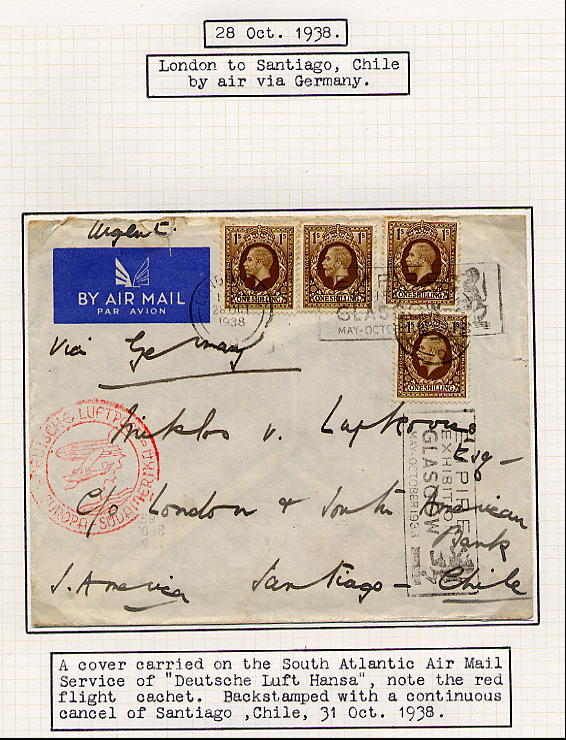 28 Oct. 1938.
London to Santiago, Chile
by air via Germany.
Urgent.
BY AIR MAIL
PAR AVION
1s 1s 1s
ONE SHILLING ONE SHILLING ONE SHILLING
28 OCT
1938
GLASGOW
MAY-OCTO
1s 1s
ONE SHILLING
Via Germany
DEUTSCHE LUFTPOST
EUROPA SÜDAMERIKA
Miklos v.
Esq
c/o London & South American
Bank
S. America Santiago - Chile
EMPIRE
EXHIBITION
GLASGOW
MAY-OCTOBER 1938
A cover carried on the South Atlantic Air Mail
Service of "Deutsche Luft Hansa", note the red
flight cachet. Backstamped with a continuous
cancel of Santiago ,Chile, 31 Oct. 1938.